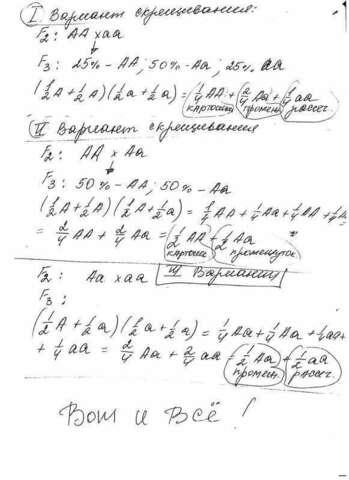 I Вариант скрещивания:
F₂: AA × aa
F₃: 25% - AA; 50% - Aa; 25% aa
(1/2A + 1/2A)(1/2a + 1/2a) = 1/4AA + 2/4Aa + 1/4aa
промеж. рассеч.
II Вариант скрещивания
F₂: AA × Aa
F₃: 50% - AA; 50% - Aa
(1/2A + 1/2A)(1/2A + 1/2a) = 1/4AA + 1/4Aa + 1/4AA + 1/4
= 2/4AA + 2/4Aa = 1/2AA + 1/2Aa
F₂: Aa × aa III Вариант
F₃:
(1/2A + 1/2a)(1/2a + 1/2a) = 1/4Aa + 1/4Aa + 1/4aa +
+ 1/4aa = 2/4Aa + 2/4aa = 1/2Aa + 1/2aa
промеж. рассеч.
Вот и Всё!